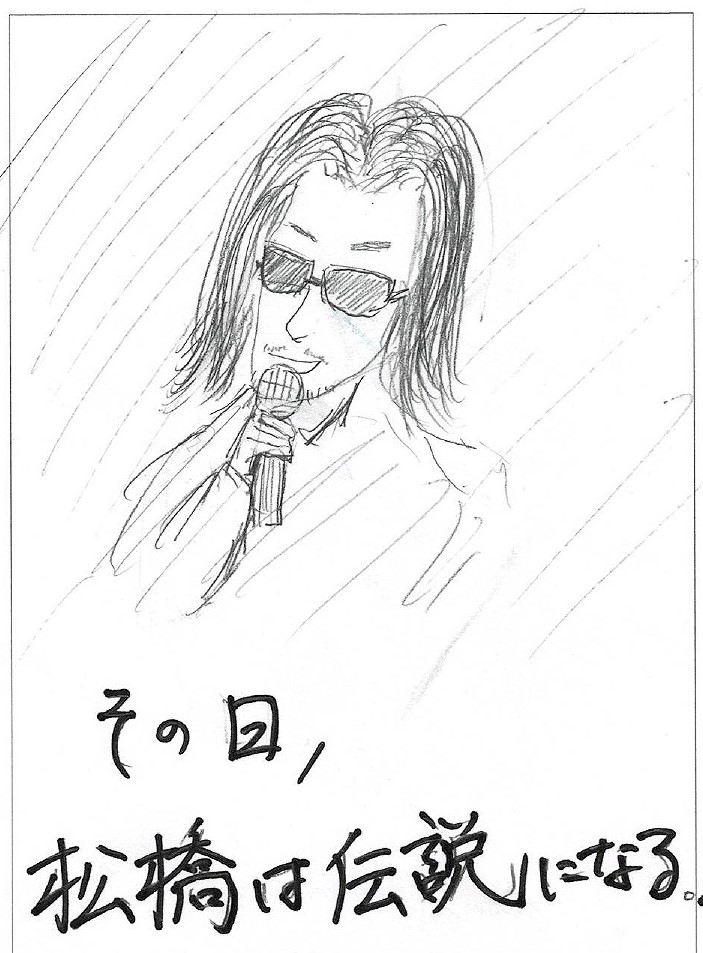 その日,
松橋は伝説になる。